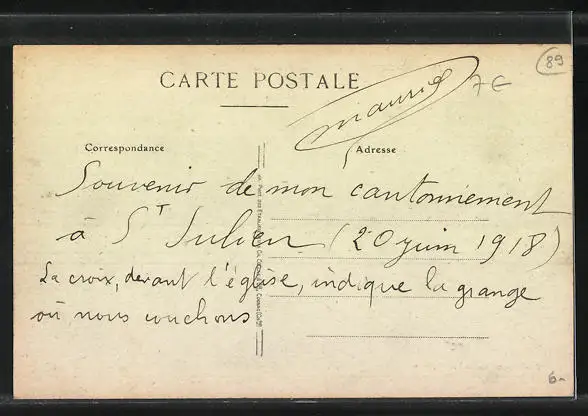 89
CARTE POSTALE
Maurice
7€
Correspondance
Adresse
Souvenir de mon cantonnement
à St Julien (20 juin 1918)
La croix, devant l'église, indique la grange
où nous couchons
6-